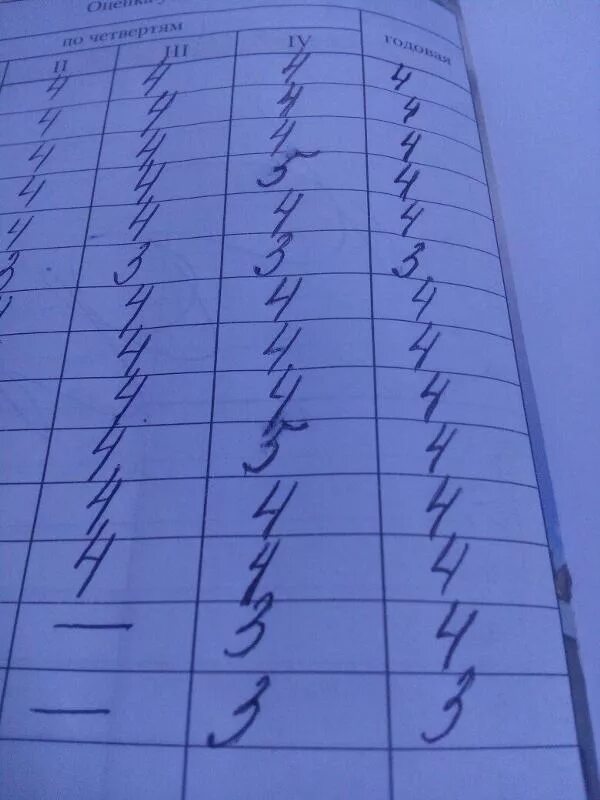 Оценка
по четвертям годовая
II III IV
4 4 4 4
4 4 4 4
4 4 4 4
4 4 5 4
4 4 4 4
3 3 3 3
4 4 4 4
4 4 4
4 4 4
4 5 4
4 4 4
4 4 4
— 3 4
— 3 3